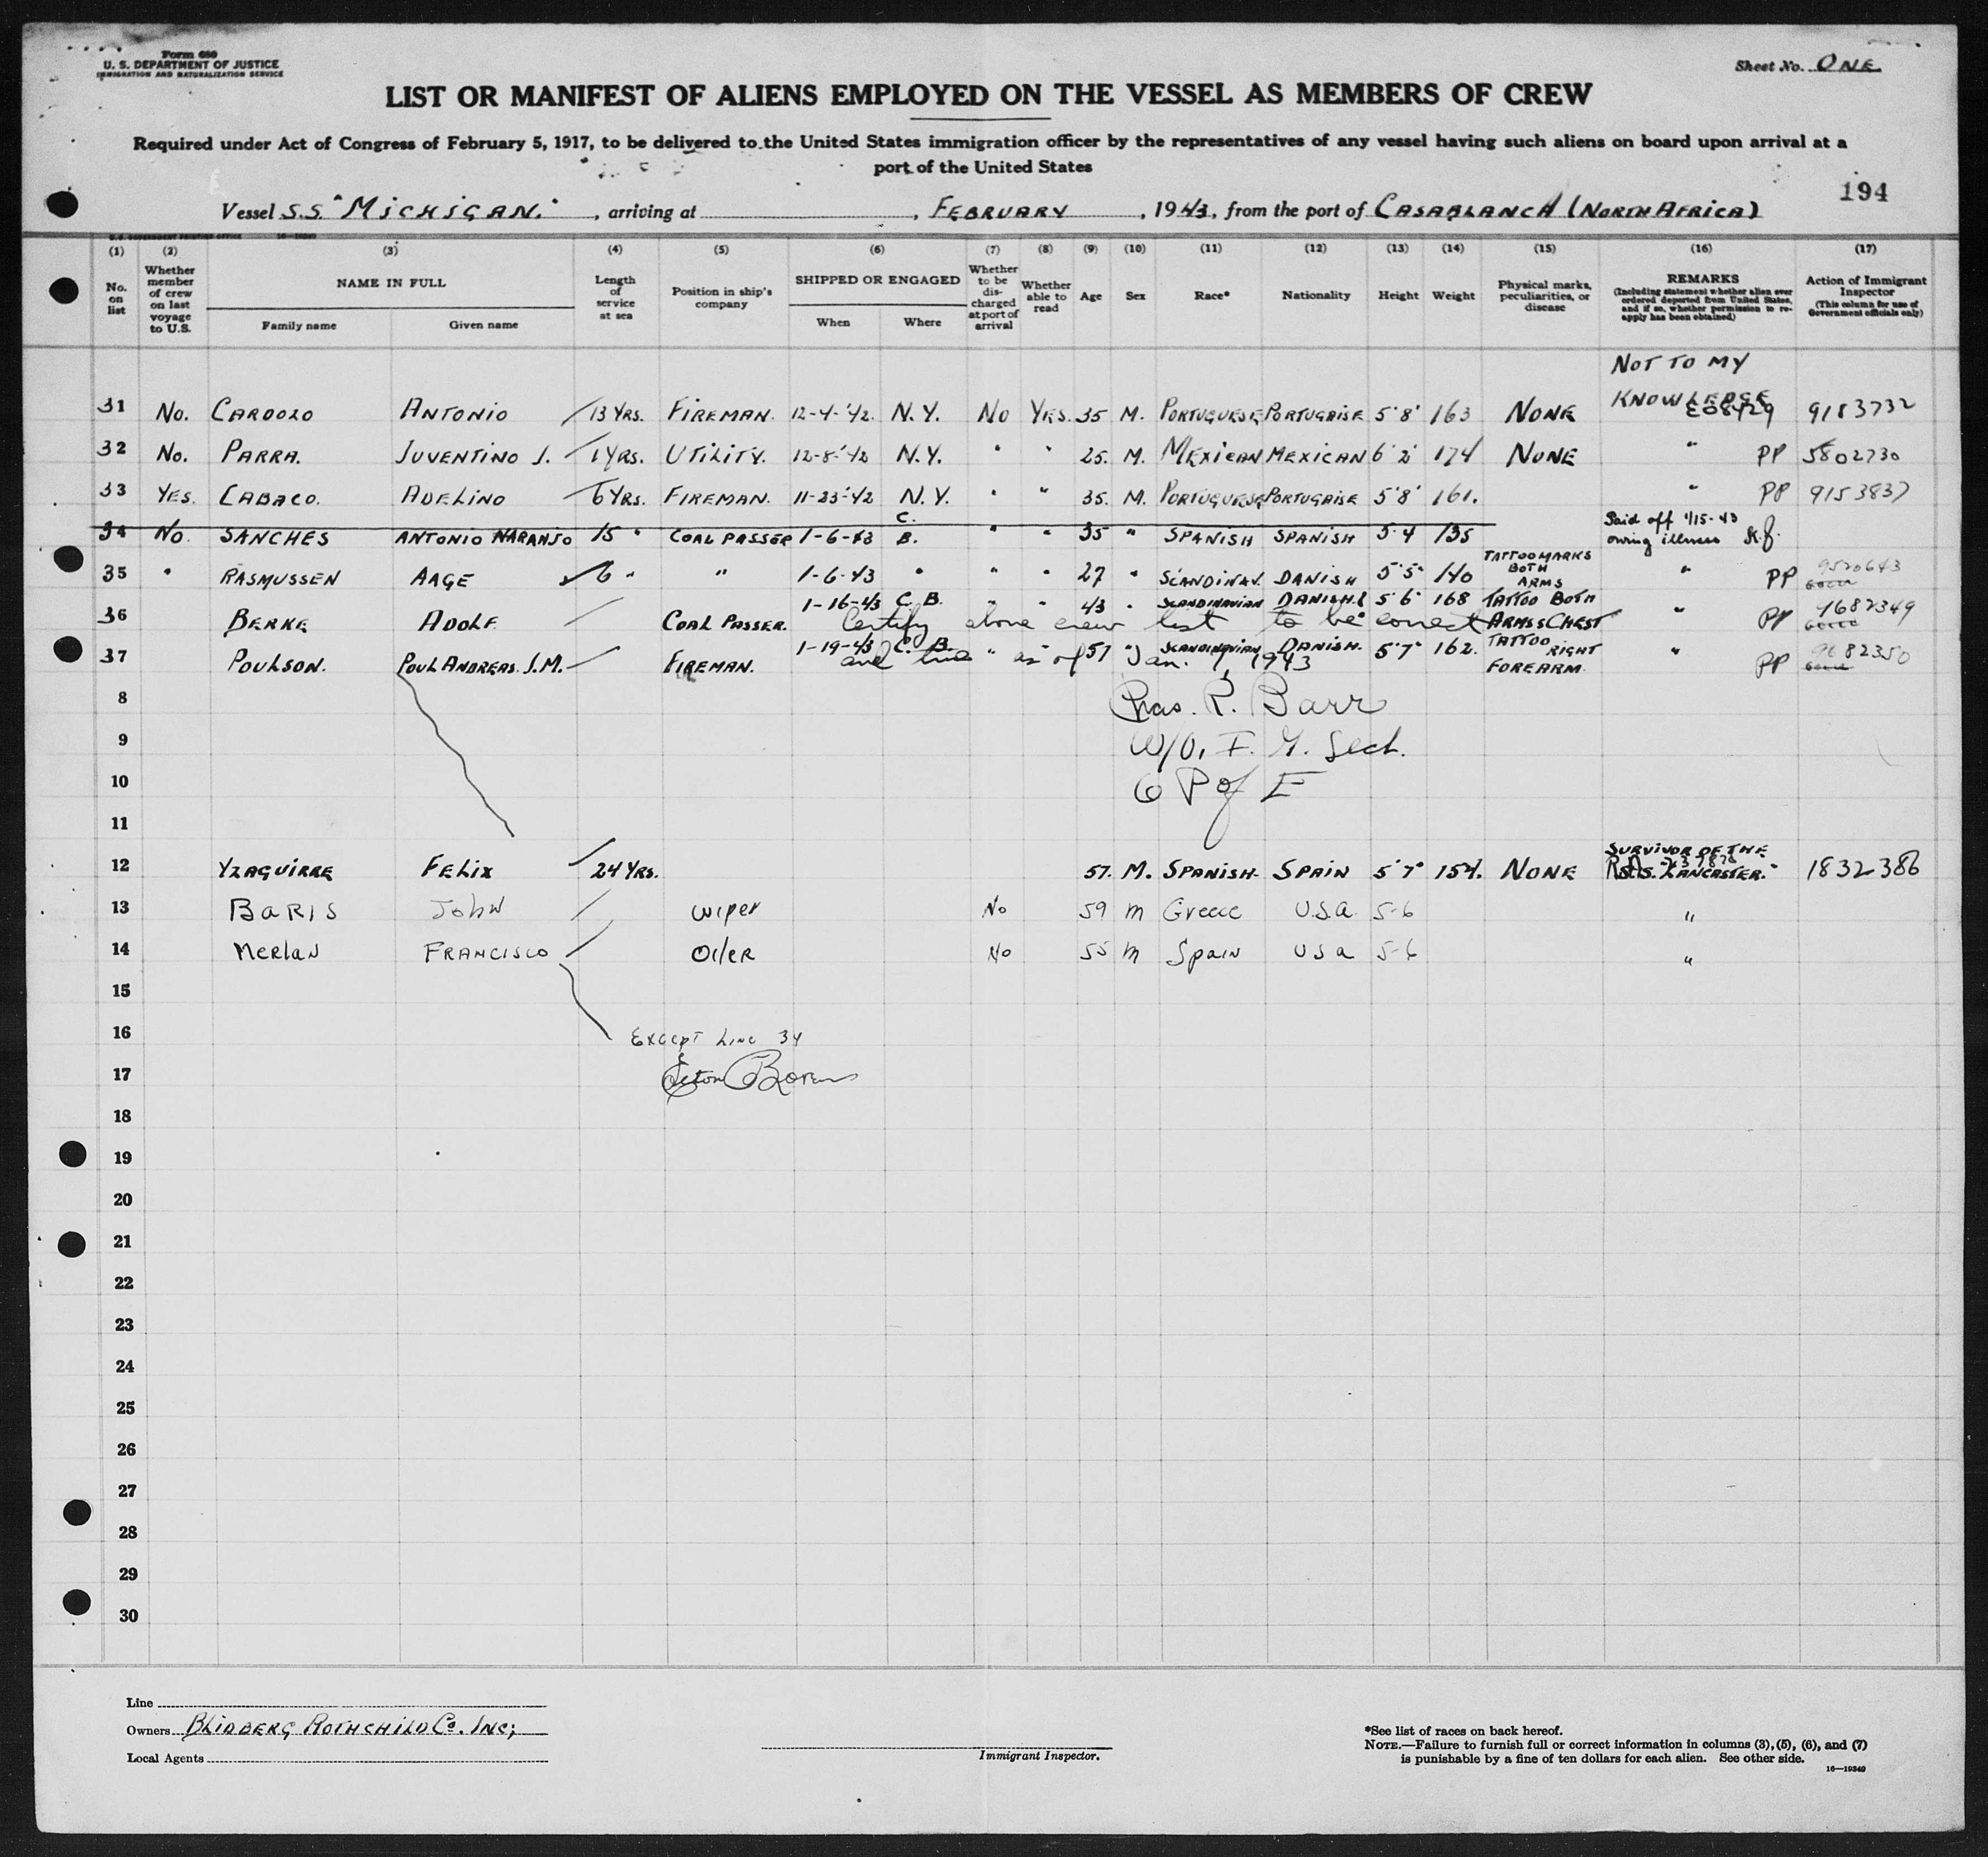 Form 680
U. S. DEPARTMENT OF JUSTICE
IMMIGRATION AND NATURALIZATION SERVICE
Sheet No. ONE
LIST OR MANIFEST OF ALIENS EMPLOYED ON THE VESSEL AS MEMBERS OF CREW
Required under Act of Congress of February 5, 1917, to be delivered to the United States immigration officer by the representatives of any vessel having such aliens on board upon arrival at a
port of the United States
194
Vessel S.S. "MICHIGAN." , arriving at , FEBRUARY , 1943, from the port of CASABLANCA (NORTH AFRICA)
(1) (2) (3) (4) (5) (6) (7) (8) (9) (10) (11) (12) (13) (14) (15) (16) (17)
No. on list
Whether member of crew on last voyage to U.S.
NAME IN FULL
Family name
Given name
Length of service at sea
Position in ship's company
SHIPPED OR ENGAGED
When
Where
Whether to be discharged at port of arrival
Whether able to read
Age
Sex
Race*
Nationality
Height
Weight
Physical marks, peculiarities, or disease
REMARKS
(Including statement whether alien ever ordered deported from United States, and if so, whether permission to reapply has been obtained)
Action of Immigrant Inspector
(This column for use of Government officials only)
NOT TO MY
KNOWLEDGE
31 No. CARDOZO ANTONIO 13 YRS. FIREMAN. 12-4-'42. N.Y. No YES. 35 M. PORTUGUESE PORTUGAISE 5'8" 163 NONE E08429 9183732
32 No. PARRA. JUVENTINO J. 1 YRS. UTILITY. 12-8-'42 N.Y. " " 25. M. MEXICAN MEXICAN 6'2" 174 NONE " PP 5802730
33 YES. CABACO. ADELINO 6 YRS. FIREMAN. 11-23-'42 N.Y. " " 35. M. PORTUGUESE PORTUGAISE 5'8" 161. " PP 9153837
34 No. SANCHES ANTONIO NARANJO 15 " COAL PASSER 1-6-43 C. B. " " 35 " SPANISH SPANISH 5-4 135 Paid off 1/15-43 owing illness
35 " RASMUSSEN AAGE 6 " " 1-6-43 " " " 27 " SCANDINAV. DANISH 5'5" 140 TATTOO MARKS BOTH ARMS " PP 9520643
36 BERKE ADOLF COAL PASSER. 1-16-43 C. B. " " 43 " SCANDINAVIAN DANISH. 5'6" 168 TATTOO BOTH ARMS & CHEST " PP 9682349
I Certify above crew list to be correct
37 POULSON. POUL ANDREAS. J.M. FIREMAN. 1-19-43 C. B. " " 57 " SCANDINAVIAN DANISH. 5'7" 162. TATTOO RIGHT FOREARM " PP 9682350
and true as of Jan. 7, 1943
8 Chas. R. Barr
9
10 6 P of E
11
12 YZAGUIRRE FELIX 24 YRS. 57. M. SPANISH. SPAIN 5'7" 154. NONE SURVIVOR OF THE LANCASTER." 1832386
13 BARIS JOHN Wiper No 59 M Greece USA 5-6 "
14 Merlan FRANCISCO Oiler No 55 M Spain USA 5-6 "
15
16 EXCEPT LINE 34
17
18
19
20
21
22
23
24
25
26
27
28
29
30
Line
Owners BLIDBERG ROTHCHILD Co. INC;
Local Agents
Immigrant Inspector.
*See list of races on back hereof.
NOTE.—Failure to furnish full or correct information in columns (3), (5), (6), and (7)
is punishable by a fine of ten dollars for each alien. See other side.
16—19340